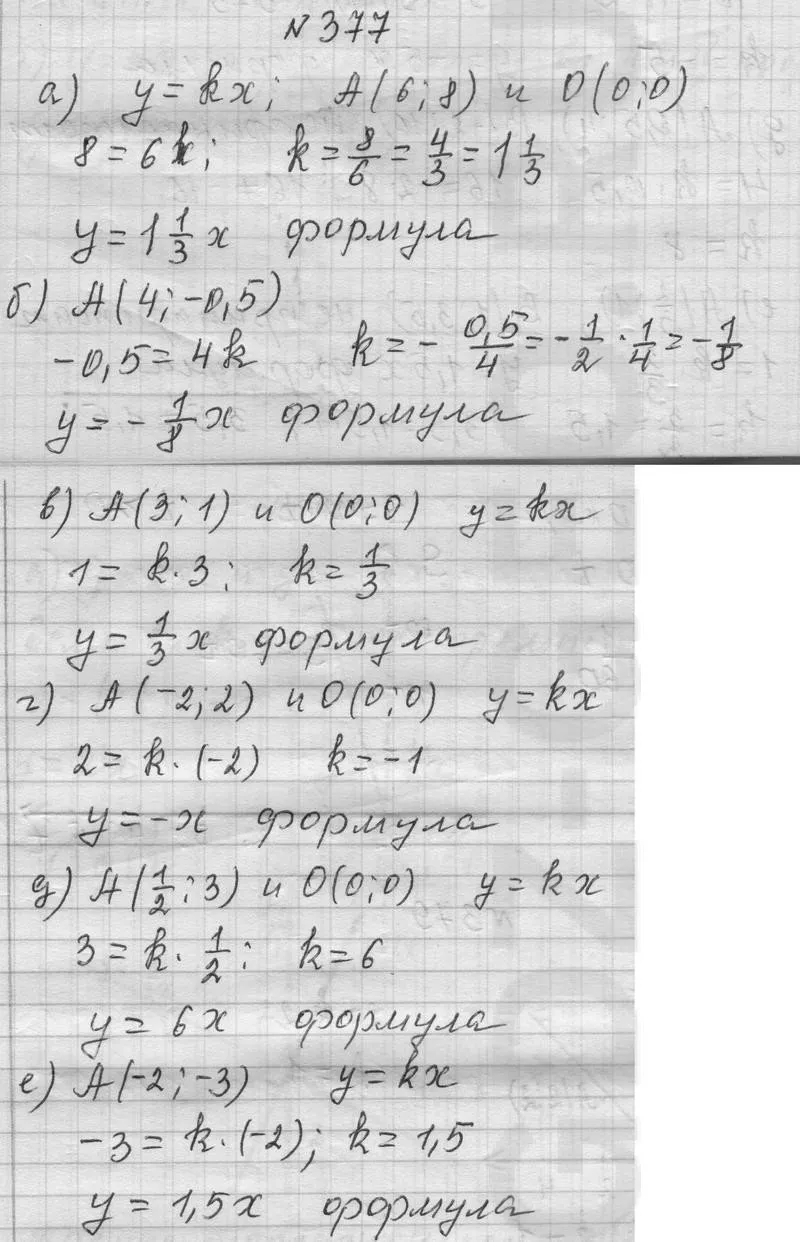 № 377
а) y = kx; A(6;8) и O(0;0)
8 = 6k; k = 8/6 = 4/3 = 1 1/3
y = 1 1/3 x формула
б) A(4;-0,5)
-0,5 = 4k k = - 0,5/4 = - 1/2 · 1/4 = - 1/8
y = - 1/8 x формула
в) A(3;1) и O(0;0) y = kx
1 = k·3; k = 1/3
y = 1/3 x формула
г) A(-2;2) и O(0;0) y = kx
2 = k·(-2) k = -1
y = -x формула
д) A(1/2;3) и O(0;0) y = kx
3 = k· 1/2; k = 6
y = 6x формула
е) A(-2;-3) y = kx
-3 = k·(-2); k = 1,5
y = 1,5x формула